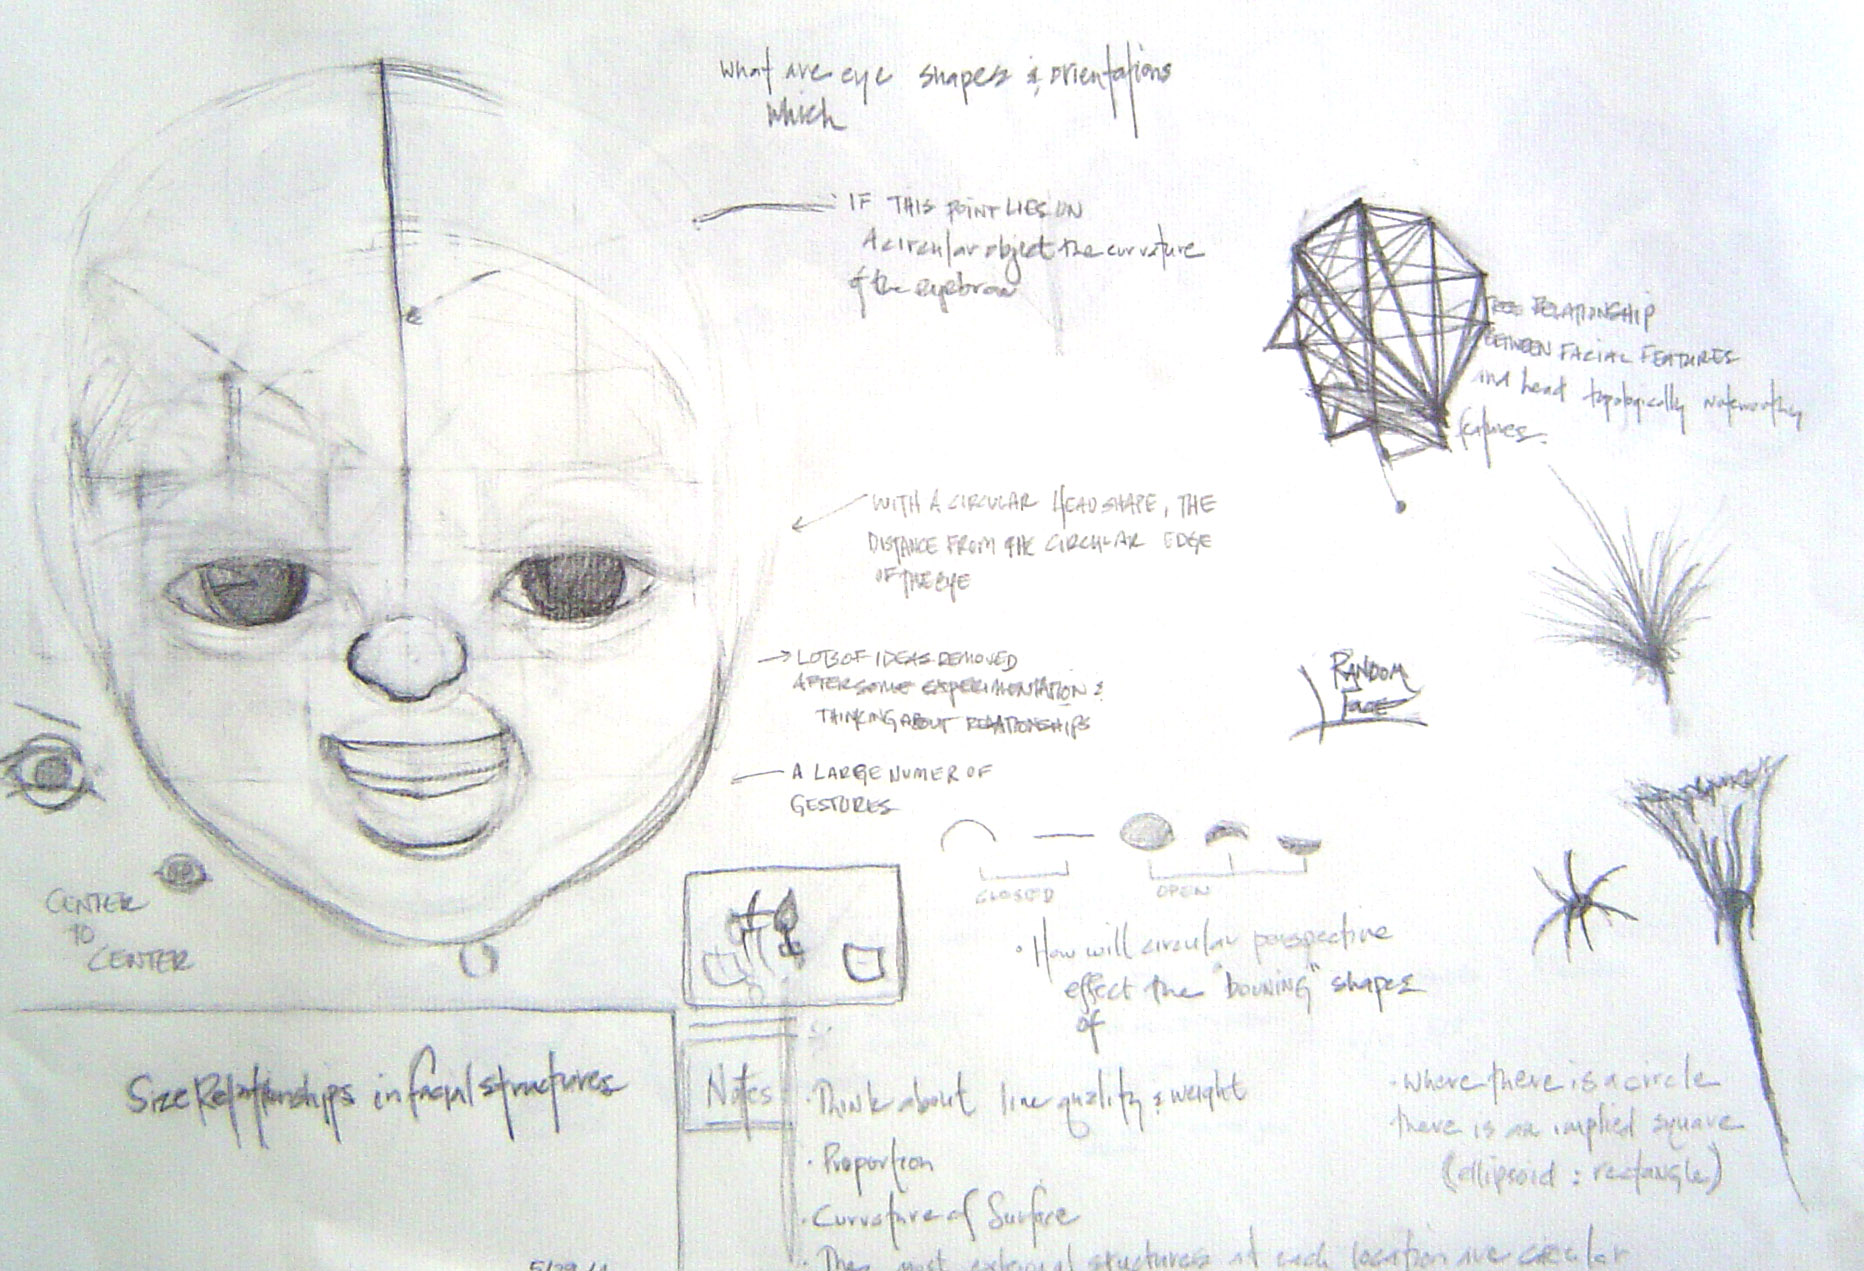 What are eye shapes & orientations
which
IF THIS POINT LIES ON
A circular object the curvature
of the eyebrow
TREE RELATIONSHIP
BETWEEN FACIAL FEATURES
and head topologically noteworthy
features.
WITH A CIRCULAR HEAD SHAPE, THE
DISTANCE FROM THE CIRCULAR EDGE
OF THE EYE
LOTS OF IDEAS REMOVED
AFTER SOME EXPERIMENTATION &
THINKING ABOUT RELATIONSHIPS
RANDOM
FACE
A LARGE NUMER OF
GESTURES
CLOSED
OPEN
CENTER
TO
CENTER
• How will circular perspective
effect the "bouning" shapes
of
Size Relationships in facial structures
Notes
• Think about line quality & weight
• Proportion
• Curvature of Surface
• The most external structures at each location are circular
• Where there is a circle
there is an implied square
(ellipsoid : rectangle)